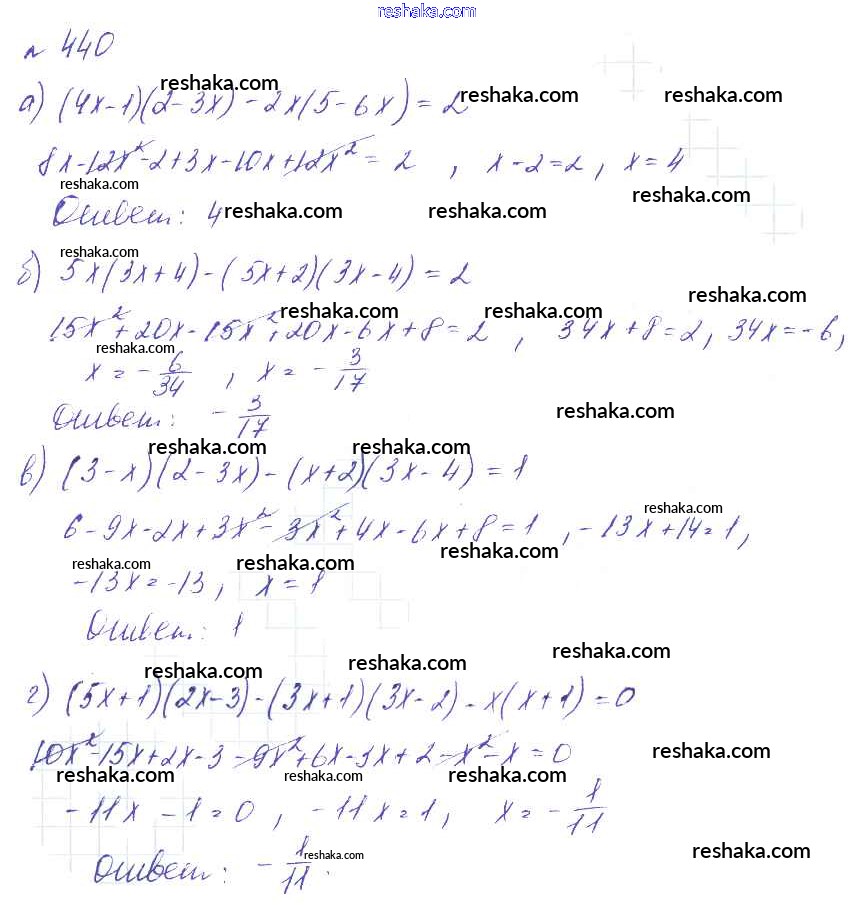 reshaka.com
№ 440
reshaka.com
а) (4x-1)(2-3x)-2x(5-6x)=2 reshaka.com reshaka.com
8x-12x²-2+3x-10x+12x²=2, x-2=2, x=4
reshaka.com reshaka.com
Ответ: 4 reshaka.com reshaka.com
reshaka.com
б) 5x(3x+4)-(5x+2)(3x-4)=2
reshaka.com
15x²+20x-15x²+20x-6x+8=2, 34x+8=2, 34x=-6,
reshaka.com reshaka.com
reshaka.com
x=-6/34, x=-3/17
Ответ: -3/17 reshaka.com
reshaka.com reshaka.com
в) (3-x)(2-3x)-(x+2)(3x-4)=1
reshaka.com
6-9x-2x+3x²-3x²+4x-6x+8=1, -13x+14=1,
reshaka.com reshaka.com
-13x=-13, x=1
Ответ: 1
reshaka.com reshaka.com reshaka.com
г) (5x+1)(2x-3)-(3x+1)(3x-2)-x(x+1)=0
10x²-15x+2x-3-9x²+6x-3x+2-x²-x=0 reshaka.com
reshaka.com reshaka.com reshaka.com
-11x-1=0, -11x=1, x=-1/11
reshaka.com reshaka.com
Ответ: -1/11.